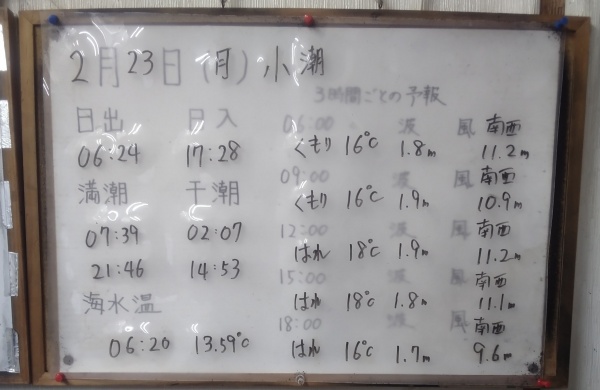 2月23日(月)小潮
3時間ごとの予報
日出 日入
06:24 17:28
満潮 干潮
07:39 02:07
21:46 14:53
海水温
06:20 13.59℃
06:00 波 風 南西
くもり 16℃ 1.8m 11.2m
09:00 波 風 南西
くもり 16℃ 1.9m 10.9m
12:00 波 風 南西
はれ 18℃ 1.9m 11.2m
15:00 波 風 南西
はれ 18℃ 1.8m 11.1m
18:00 波 風 南西
はれ 16℃ 1.7m 9.6m